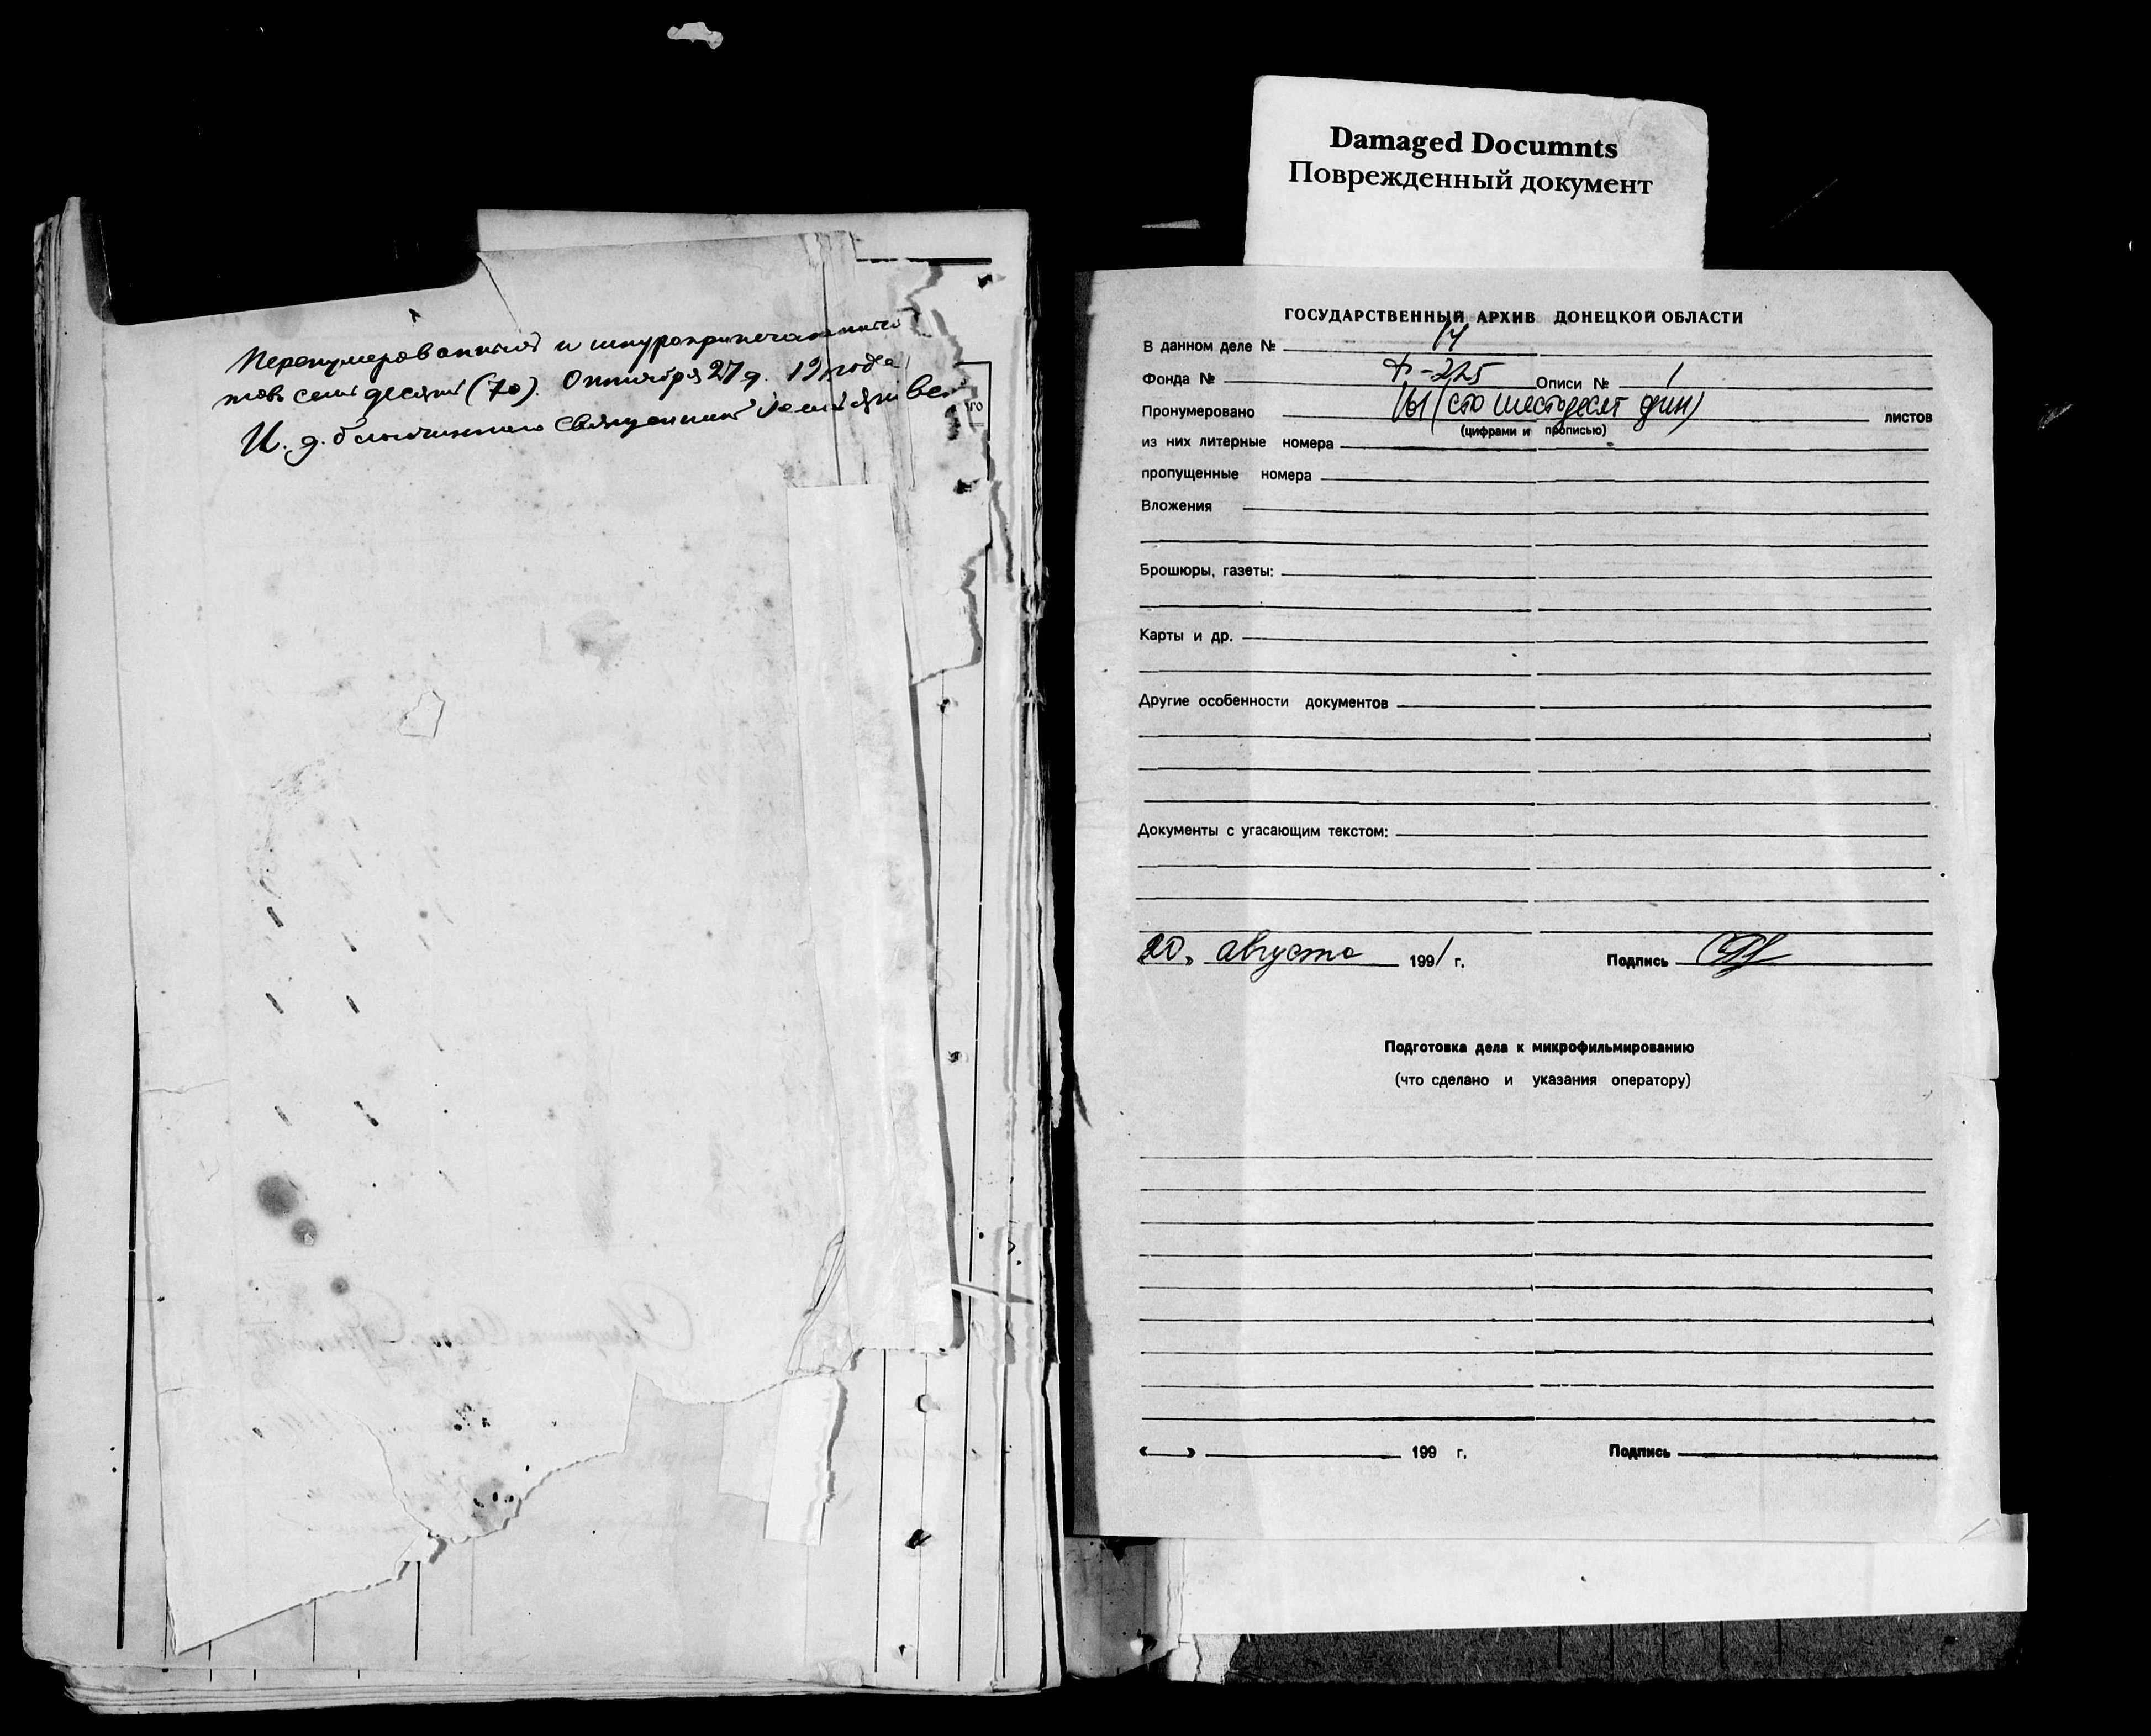 Damaged Documnts
Поврежденный документ
Перенумерованныхъ и шнурозапечатанныхъ
семьдесятъ (70). Октября 27 д. 19 года
И. д. благочиннаго Священникъ
ГОСУДАРСТВЕННЫЙ АРХИВ ДОНЕЦКОЙ ОБЛАСТИ
В данном деле № 14
Фонда № Ф-225 Описи № 1
Пронумеровано 161 (сто шестьдесят один) листов
(цифрами и прописью)
из них литерные номера
пропущенные номера
Вложения
Брошюры, газеты:
Карты и др.
Другие особенности документов
Документы с угасающим текстом:
20, августа 1991 г. Подпись
Подготовка дела к микрофильмированию
(что сделано и указания оператору)
« » 199 г. Подпись